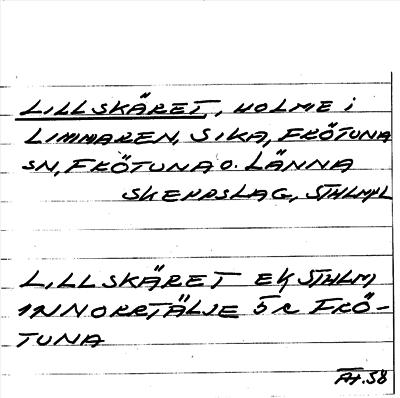 LILLSKÄRET, HOLME i
LIMMAREN, SIKA, FRÖTUNA
SN, FRÖTUNA O. LÄNNA
SKEPPSLAG, STHLM
LILLSKÄRET EK STHLM
INNORRTÄLJE 5 R FRÖ-
TUNA